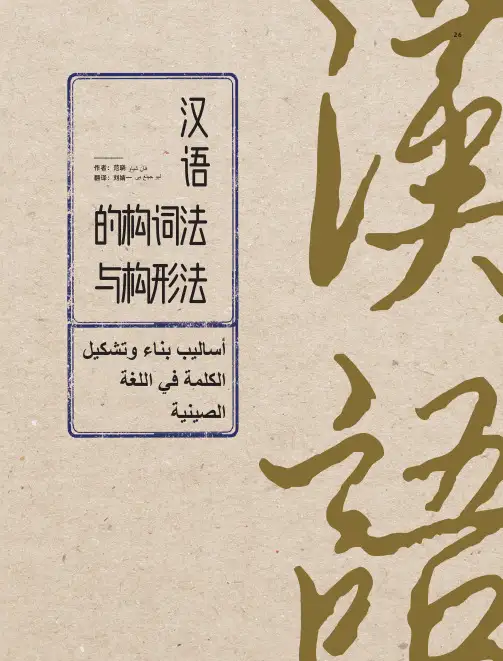 26
漢
語
汉
语
的构词法
与构形法
作者：范晓 فان شياو
翻译：刘婧一 ليو جينغ يي
أساليب بناء وتشكيل
الكلمة في اللغة
الصينية